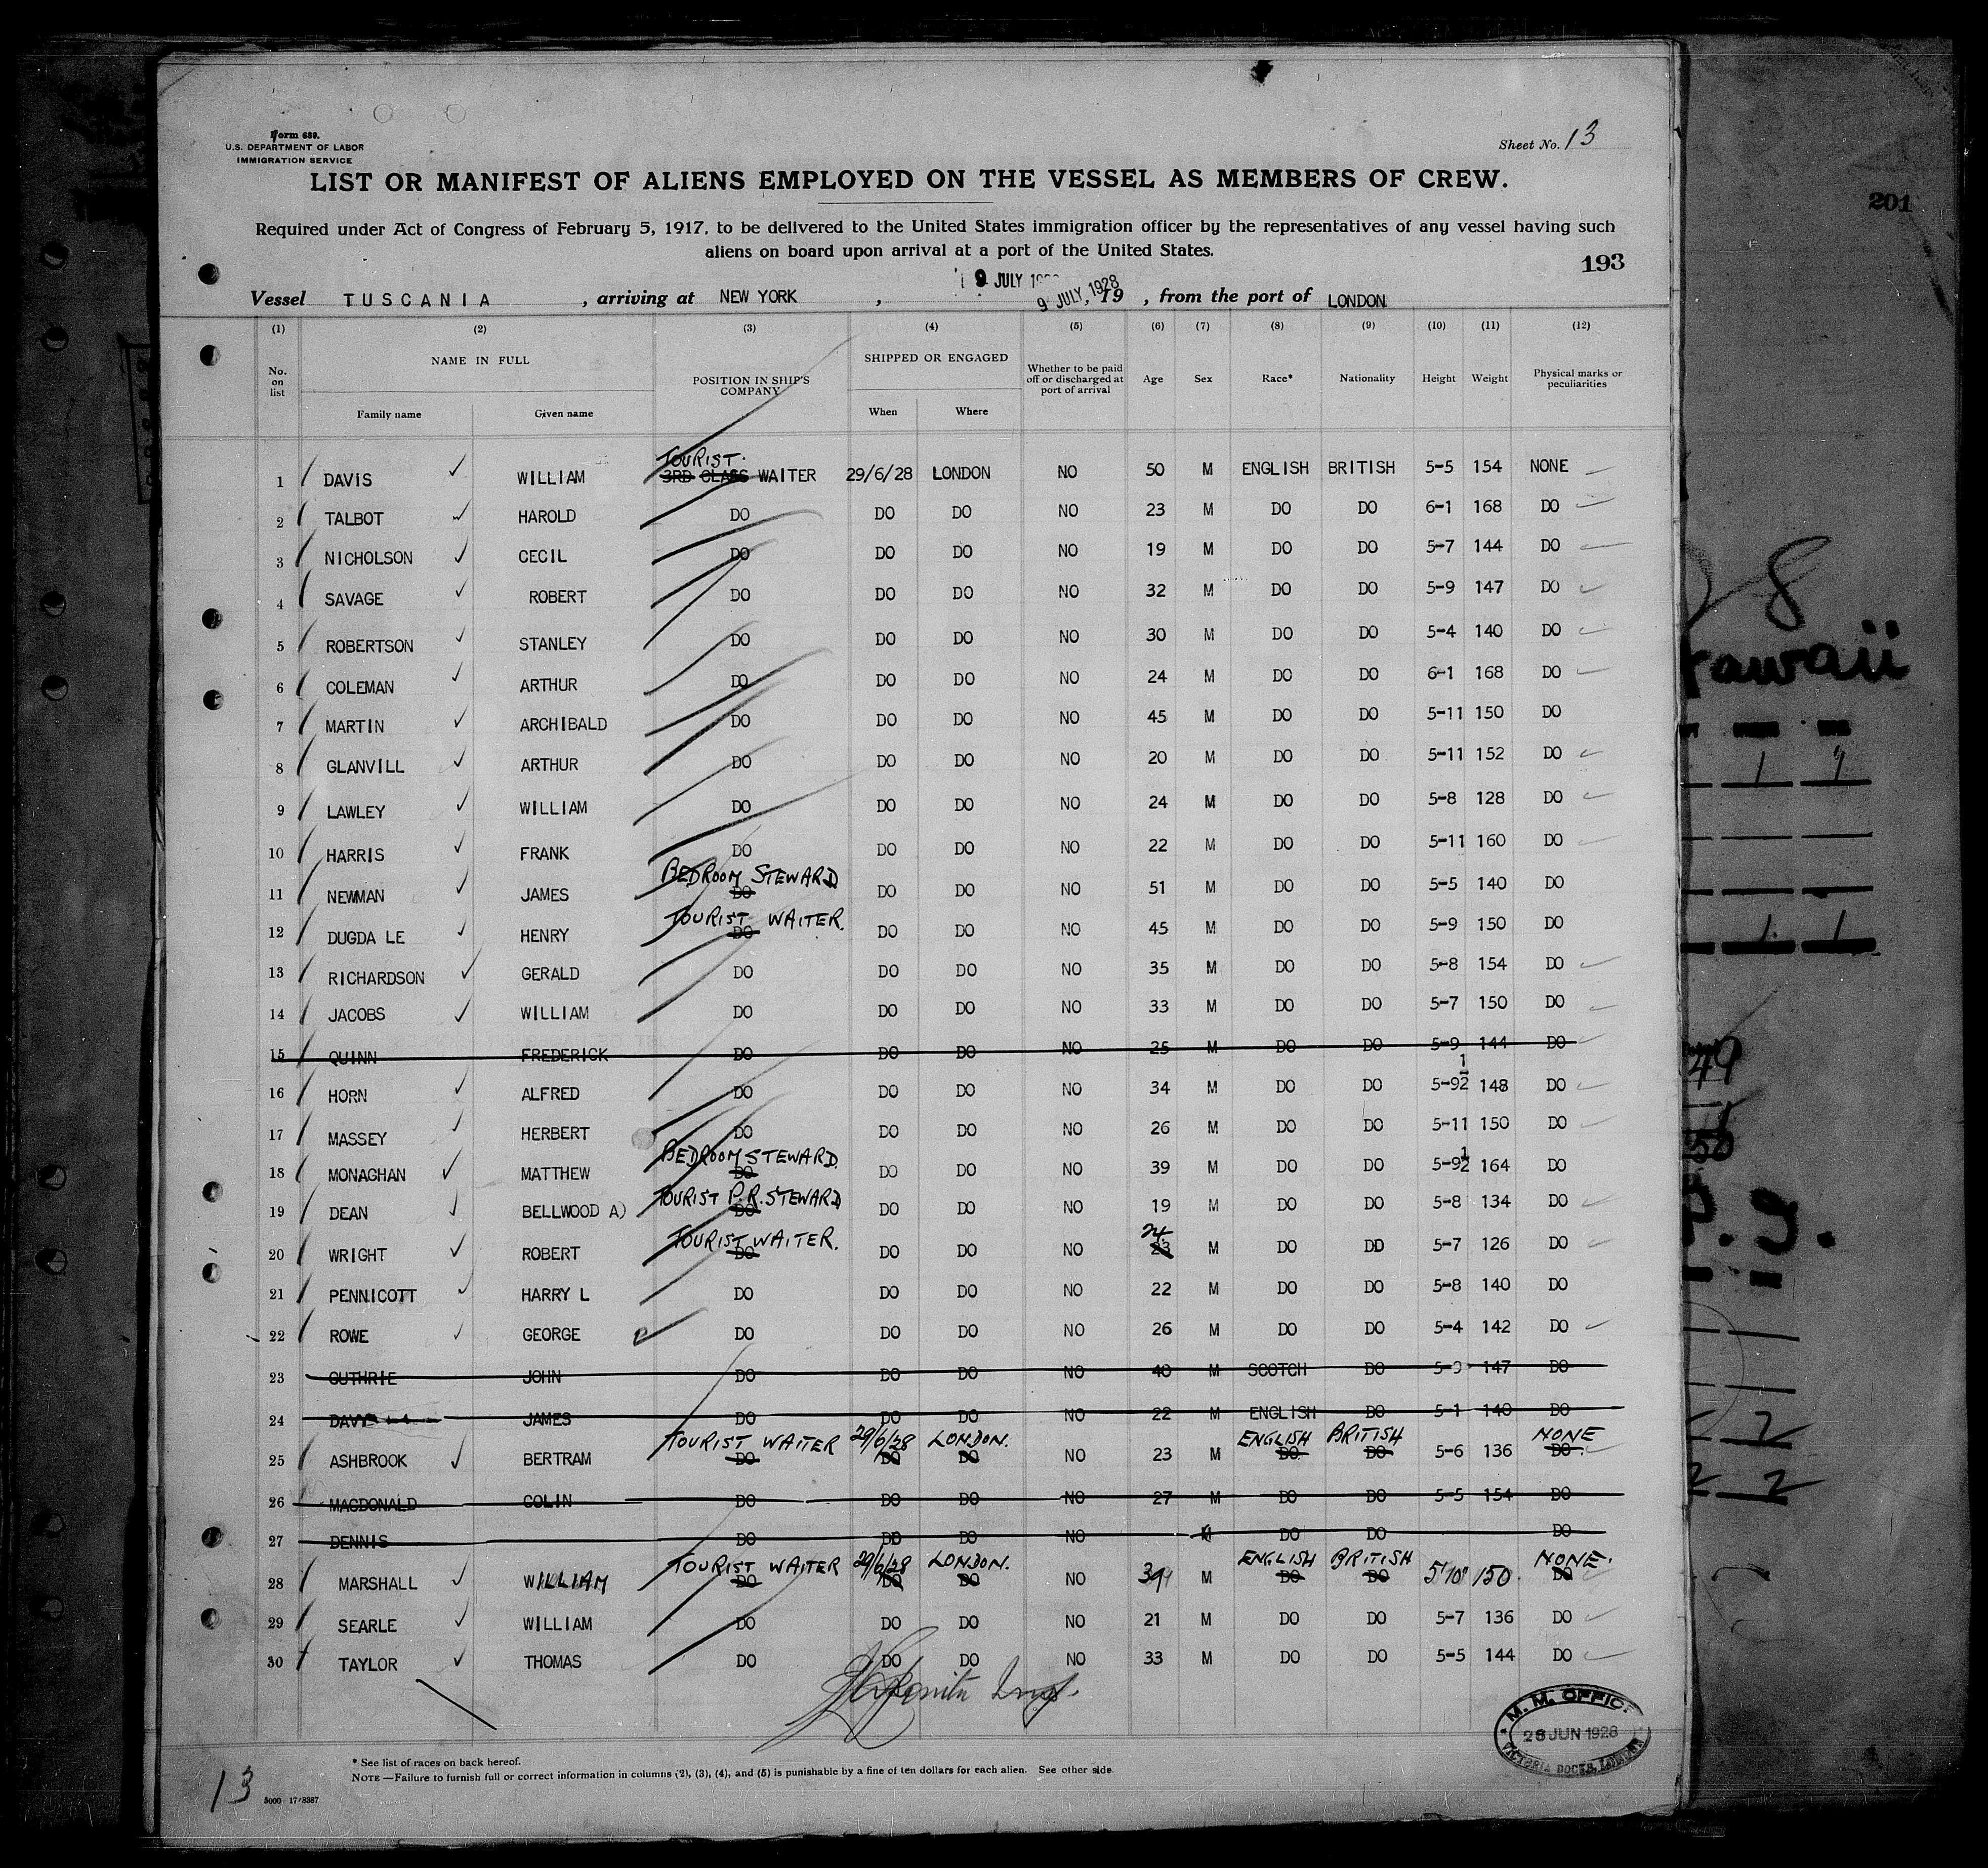 Form 680.
U.S. DEPARTMENT OF LABOR
IMMIGRATION SERVICE
Sheet No. 13
LIST OR MANIFEST OF ALIENS EMPLOYED ON THE VESSEL AS MEMBERS OF CREW.
Required under Act of Congress of February 5, 1917, to be delivered to the United States immigration officer by the representatives of any vessel having such
aliens on board upon arrival at a port of the United States.
201
193
9 JULY
Vessel TUSCANIA , arriving at NEW YORK , 9 JULY, 1928 , 19 , from the port of LONDON
(1) (2) (3) (4) (5) (6) (7) (8) (9) (10) (11) (12)
No. on list NAME IN FULL Family name Given name POSITION IN SHIP'S COMPANY SHIPPED OR ENGAGED When Where Whether to be paid off or discharged at port of arrival Age Sex Race* Nationality Height Weight Physical marks or peculiarities
TOURIST
1 DAVIS WILLIAM 3RD CLASS WAITER 29/6/28 LONDON NO 50 M ENGLISH BRITISH 5-5 154 NONE
2 TALBOT HAROLD DO DO DO NO 23 M DO DO 6-1 168 DO
3 NICHOLSON CECIL DO DO DO NO 19 M DO DO 5-7 144 DO
4 SAVAGE ROBERT DO DO DO NO 32 M DO DO 5-9 147 DO
5 ROBERTSON STANLEY DO DO DO NO 30 M DO DO 5-4 140 DO
6 COLEMAN ARTHUR DO DO DO NO 24 M DO DO 6-1 168 DO
7 MARTIN ARCHIBALD DO DO DO NO 45 M DO DO 5-11 150 DO
8 GLANVILL ARTHUR DO DO DO NO 20 M DO DO 5-11 152 DO
9 LAWLEY WILLIAM DO DO DO NO 24 M DO DO 5-8 128 DO
10 HARRIS FRANK DO DO DO NO 22 M DO DO 5-11 160 DO
BEDROOM STEWARD
11 NEWMAN JAMES DO DO DO NO 51 M DO DO 5-5 140 DO
TOURIST WAITER.
12 DUGDA LE HENRY DO DO DO NO 45 M DO DO 5-9 150 DO
13 RICHARDSON GERALD DO DO DO NO 35 M DO DO 5-8 154 DO
14 JACOBS WILLIAM DO DO DO NO 33 M DO DO 5-7 150 DO
15 QUINN FREDERICK DO DO DO NO 25 M DO DO 5-9 144 DO
16 HORN ALFRED DO DO DO NO 34 M DO DO 5-9½ 148 DO
17 MASSEY HERBERT DO DO DO NO 26 M DO DO 5-11 150 DO
BEDROOM STEWARD.
18 MONAGHAN MATTHEW DO DO DO NO 39 M DO DO 5-9½ 164 DO
TOURIST P.R. STEWARD
19 DEAN BELLWOOD A) DO DO DO NO 19 M DO DO 5-8 134 DO
TOURIST WAITER. 24
20 WRIGHT ROBERT DO DO DO NO 23 M DO DD 5-7 126 DO
21 PENNICOTT HARRY L DO DO DO NO 22 M DO DO 5-8 140 DO
22 ROWE GEORGE DO DO DO NO 26 M DO DO 5-4 142 DO
23 GUTHRIE JOHN DO DO DO NO 40 M SCOTCH DO 5-9 147 DO
24 DAVY JAMES DO DO DO NO 22 M ENGLISH DO 5-1 140 DO
TOURIST WAITER 29/6/28 LONDON. ENGLISH BRITISH NONE
25 ASHBROOK BERTRAM DO DO DO NO 23 M DO DO 5-6 136 DO
26 MACDONALD COLIN DO DO DO NO 27 M DO DO 5-5 154 DO
27 DENNIS DO DD DO NO M DO DO DO
TOURIST WAITER 29/6/28 LONDON. ENGLISH BRITISH NONE.
28 MARSHALL WILLIAM DO DO DO NO M DO DO 5'10" 150 DO
29 SEARLE WILLIAM DO DO DO NO 21 M DO DO 5-7 136 DO
30 TAYLOR THOMAS DO DO DO NO 33 M DO DO 5-5 144 DO
M. M. OFFICE
26 JUN 1928
VICTORIA DOCKS, LONDON
* See list of races on back hereof.
NOTE.—Failure to furnish full or correct information in columns (2), (3), (4), and (5) is punishable by a fine of ten dollars for each alien. See other side
13
5000 17-8387
8
Hawaii
49
250
P.I.
2 2
2 2